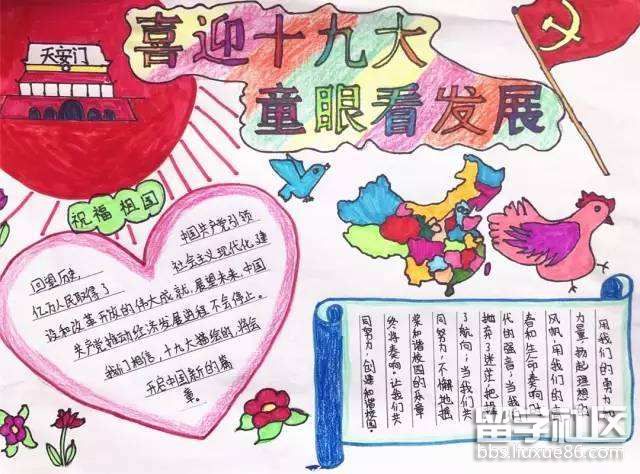 喜迎十九大
童眼看发展
天安门
祝福祖国
回望历史，中国共产党引领
亿万人民取得了社会主义现代化建
设和改革开放的伟大成就，展望未来，中国
共产党推动经济发展进程不会停止。
我们相信，十九大描绘的，将会
开启中国新的篇
章。
用我们的勇力
力量，扬起理想的
风帆，用我们的
春和生命奏响
代的强音；当我
抛弃了迷茫，把握
了航向；当我们共
同努力，不懈地摇
桨和谐校园的乐章
终将奏响。让我们共
同努力，创建和谐校园。
留学社区
bbs.liuxue86.com